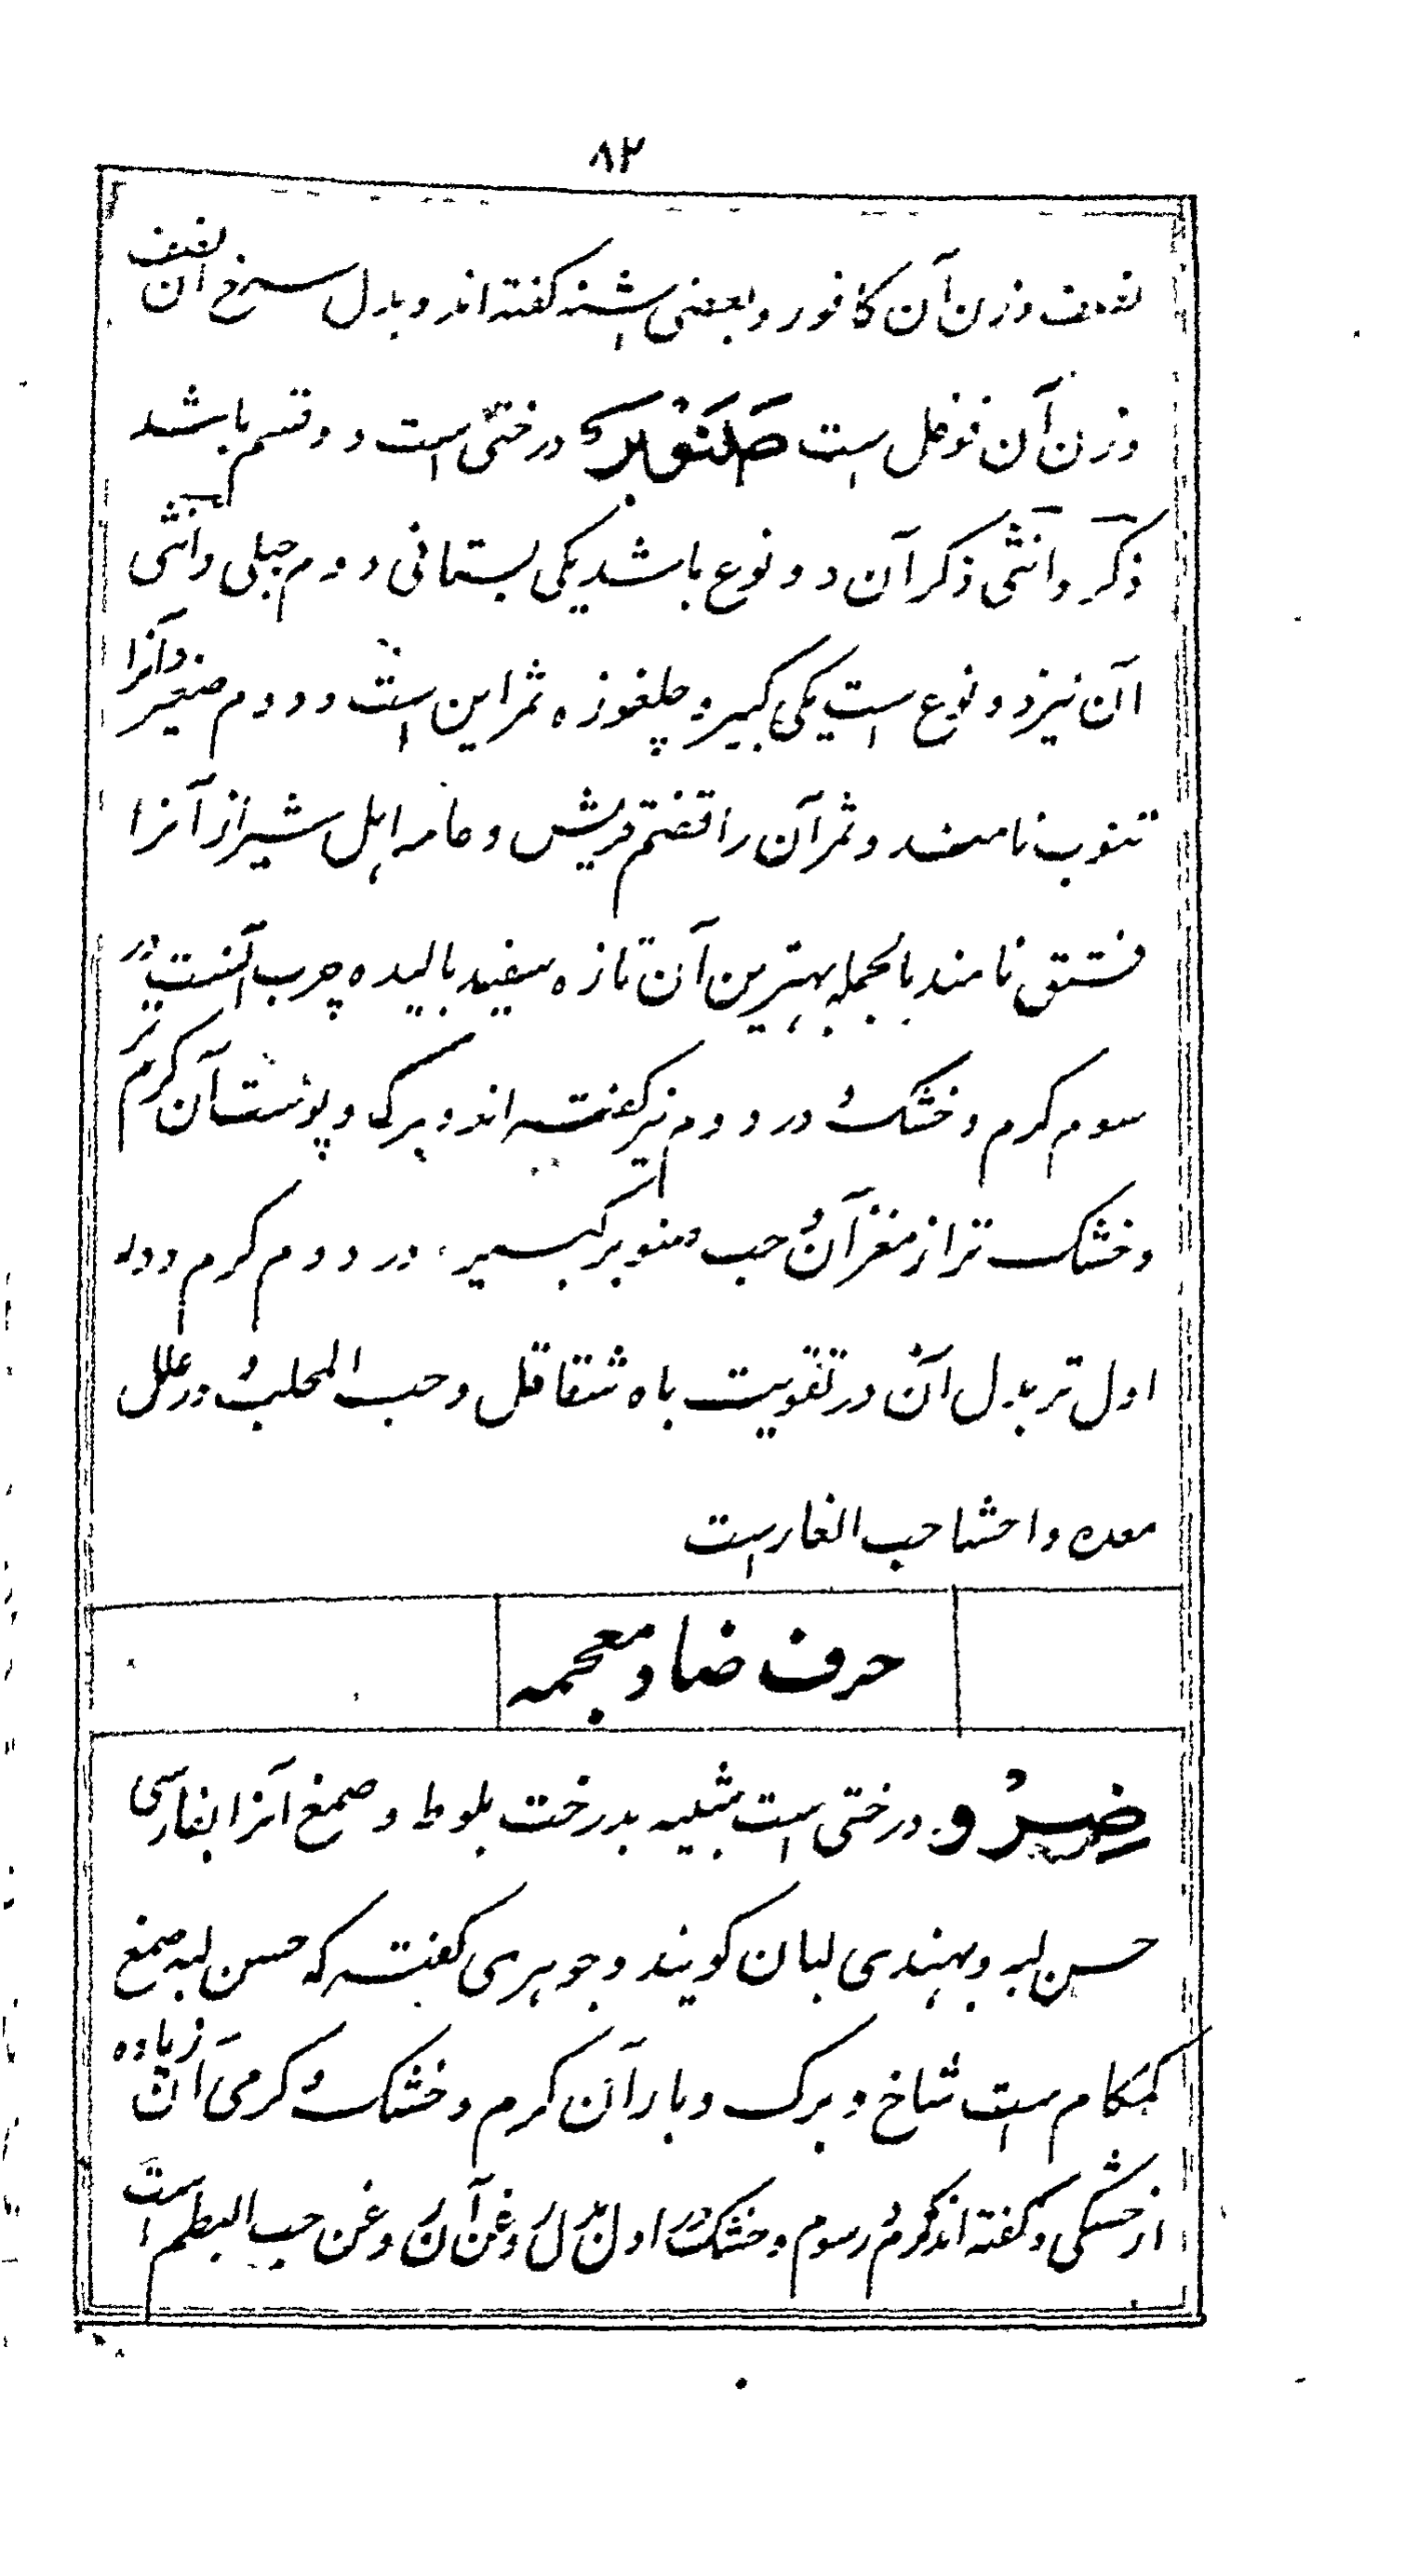 ۸۲
نصف وزن آن کافور و بعضی اشنه کفته اند و بدل سرخ آن نصف
وزن آن فوفل است صَنَوبَر درختی است دو قسم باشد
ذکر و انثی ذکر آن دو نوع باشد یکی بستانی دوم جبلی و انثی
آن نیز دو نوع است یکی کبیر و چلغوزه ثمر این است و دوم صغیر و آنرا
تنوب نامند و ثمر آن را قضم قریش و عامه اهل شیراز آنرا
فستق نامند بالجمله بهترین آن تازه سفید بالیده چرب است در
سوم کرم و خشک و در دوم نیز کفته اند و برک و پوست آن کرم تر
و خشک تر از مغز آن و حب صنوبر کبیر در دوم کرم و در
اول تر بدل آن در تقویت باه شقاقل و حب المحلب و در علل
معده و احشا حب الغار است
حرف ضاد معجمه
ضِرْو درختی است شبیه بدرخت بلوط و صمغ آنرا بفارسی
حسن لبه و بهندی لبان کویند و جوهری کفته که حسن لبه صمغ
کمکام است شاخ و برک و بار آن کرم و خشک و کرمی آن زیاده
از خشکی و کفته اند کرم در سوم و خشک در اول بدل روغن آن روغن حب البطم است